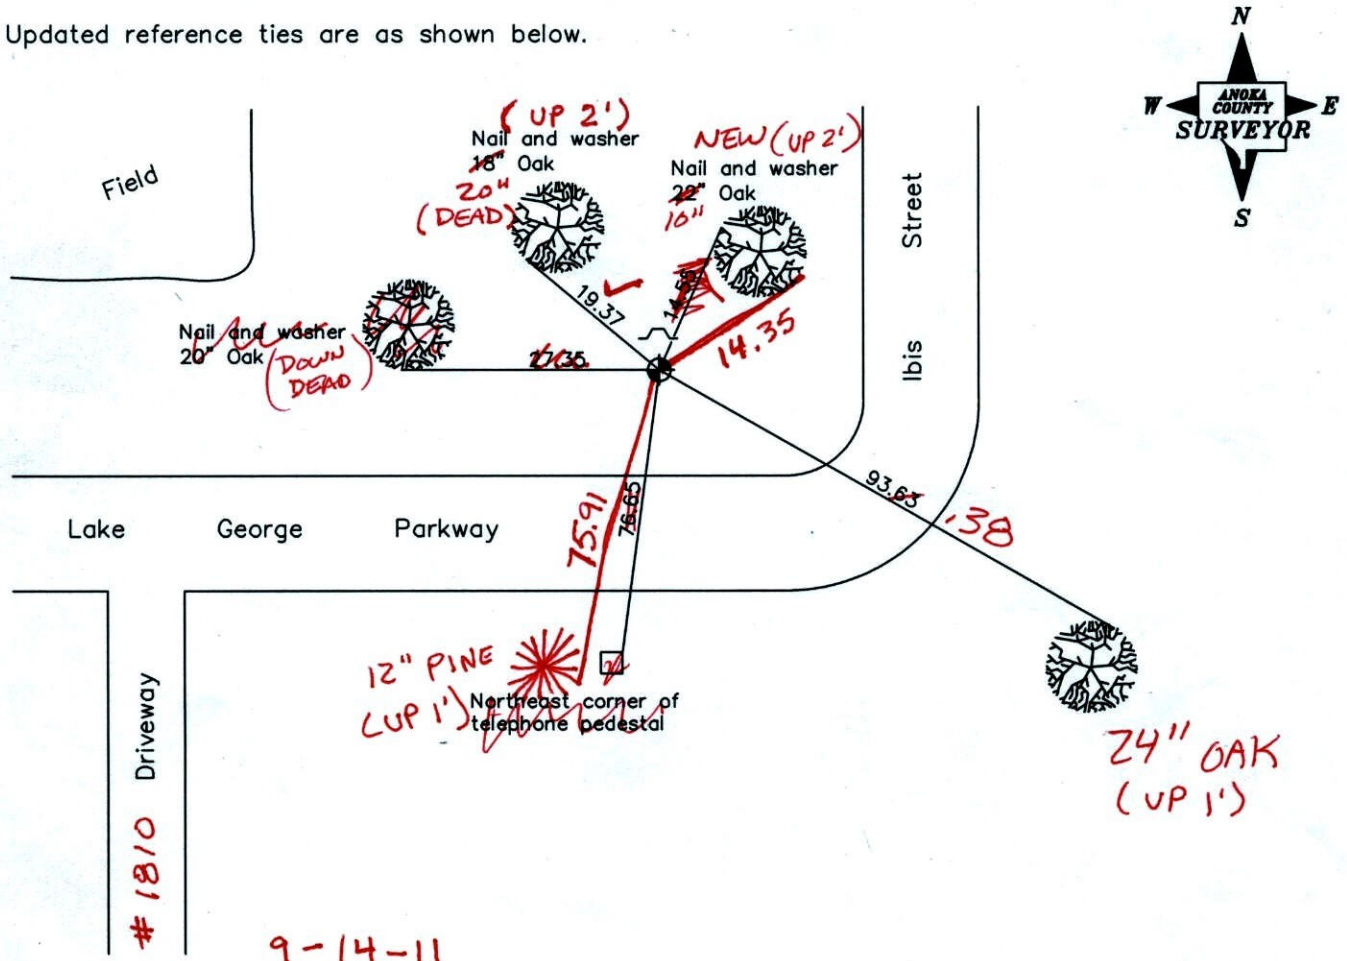 Updated reference ties are as shown below.
N
W
ANOKA
COUNTY
SURVEYOR
E
S
(UP 2')
Nail and washer
18" Oak
20"
(DEAD)
NEW (UP 2')
Nail and washer
22" Oak
10"
Field
Street
Ibis
19.37
14.58
14.35
Nail and washer
20" Oak
(DOWN
DEAD)
27.35
93.63
.38
75.91
76.65
Lake George Parkway
12" PINE
(UP 1')
Northeast corner of
telephone pedestal
24" OAK
(UP 1')
Driveway
# 1810
9-14-11